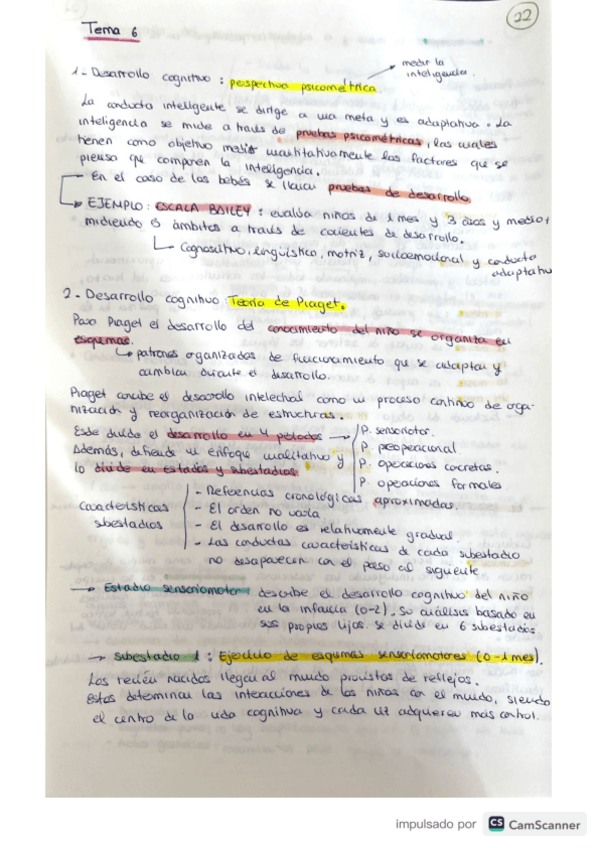 22
Tema 6
1- Desarrollo cognitivo : perspectiva psicométrica
medir la
inteligencia.
La conducta inteligente se dirige a una meta y es adaptativa. La
inteligencia se mide a través de pruebas psicométricas, las cuales
tienen como objetivo medir cuantitativamente los factores que se
piensa que componen la inteligencia.
En el caso de los bebés se llaman pruebas de desarrollo
EJEMPLO: ESCALA BAILEY : evalúa niños de 1 mes y 3 años y medio,
midiendo 5 ámbitos a través de cocientes de desarrollo.
Cognoscitivo, lingüístico, motriz, socioemocional y conducta
adaptativa
2- Desarrollo cognitivo: Teoría de Piaget.
Para Piaget el desarrollo del conocimiento del niño se organiza en
esquemas.
patrones organizados de funcionamiento que se adaptan y
cambian durante el desarrollo.
Piaget concibe el desarrollo intelectual como un proceso continuo de orga-
nización y reorganización de estructuras.
Este divide el desarrollo en 4 periodos
Además, defiende un enfoque cualitativo y
lo divide en estadios y subestadios.
P. sensoriomotor.
P. preoperacional.
P. operaciones concretas.
P. operaciones formales
Características
subestadios
- Referencias cronológicas aproximadas.
- El orden no varía
- El desarrollo es relativamente gradual.
- Las conductas características de cada subestadio
no desaparecen con el paso al siguiente
Estadio sensoriomotor describe el desarrollo cognitivo del niño
en la infancia (0-2). Su análisis basado en
sus propios hijos. Se divide en 6 subestadios
Subestadio 1 : Ejercicio de esquemas sensoriomotores (0-1 mes).
Los recién nacidos llegan al mundo provistos de reflejos.
Estos determinan las interacciones de los niños con el mundo, siendo
el centro de la vida cognitiva y cada vez adquieren más control.
impulsado por CS CamScanner